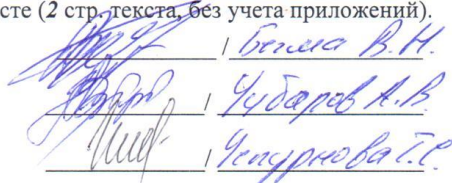 сте (2 стр. текста, без учета приложений).
/ Бима В. Н.
/ Чубаров А. В.
/ Чепурнова Т. С.